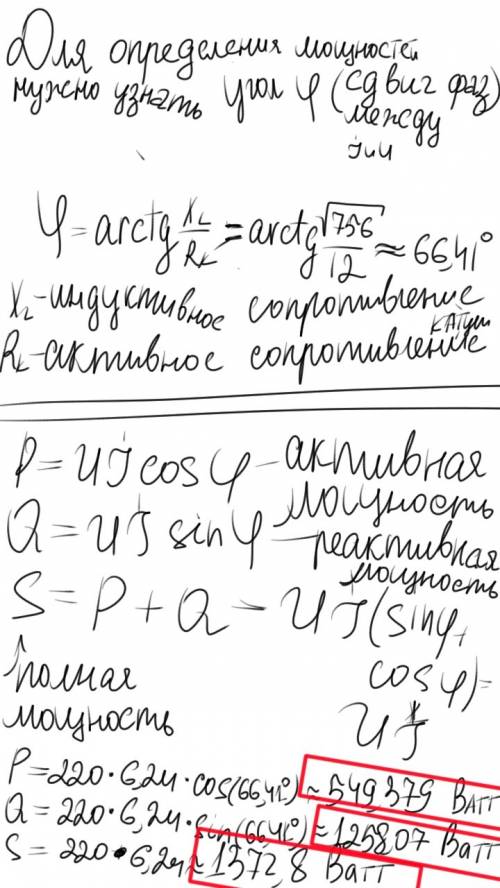 Для определения мощностей
нужно узнать угол φ (сдвиг фаз)
между
I и U
φ = arctg X_L/R_K = arctg √756/12 ≈ 66,41°
X_L - индуктивное сопротивление
R_K - активное сопротивление катуш
P = UI cos φ - активная
мощность
Q = UI sin φ - реактивная
мощность
S = P + Q = UI (sin φ +
cos φ) =
UI
полная
мощность
P = 220 · 6,24 · cos(66,41°) ≈ 549,379 Ватт
Q = 220 · 6,24 · sin(66,41°) ≈ 1258,07 Ватт
S = 220 · 6,24 ≈ 1372,8 Ватт